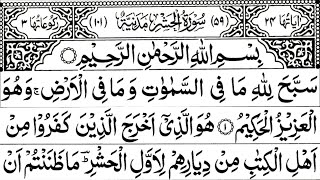 اٰيَاتُهَا ٢٤ (٥٩) سُوْرَةُ الْحَشْرِ مَدَنِيَّةٌ (١٠١) رُكُوْعَاتُهَا ٣
بِسْمِ اللّٰهِ الرَّحْمٰنِ الرَّحِيْمِ
سَبَّحَ لِلّٰهِ مَا فِى السَّمٰوٰتِ وَمَا فِى الْاَرْضِ ۚ وَهُوَ
الْعَزِيْزُ الْحَكِيْمُ ۝١ هُوَ الَّذِيْۤ اَخْرَجَ الَّذِيْنَ كَفَرُوْا مِنْ
اَهْلِ الْكِتٰبِ مِنْ دِيَارِهِمْ لِاَوَّلِ الْحَشْرِ ؕ مَا ظَنَنْتُمْ اَنْ